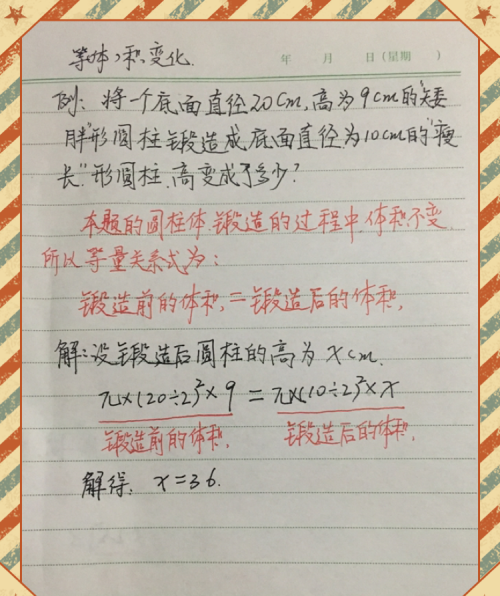 等体积变化.
年 月 日(星期 )
例: 将一个底面直径20cm,高为9cm的"矮
胖"形圆柱锻造成底面直径为10cm的"瘦
长"形圆柱.高变成了多少?
本题的圆柱体.锻造的过程中.体积不变.
所以等量关系式为:
锻造前的体积,=锻造后的体积,
解:设锻造后圆柱的高为xcm.
π×(20÷2)²×9=π×(10÷2)²×x
锻造前的体积, 锻造后的体积,
解得: x=36.